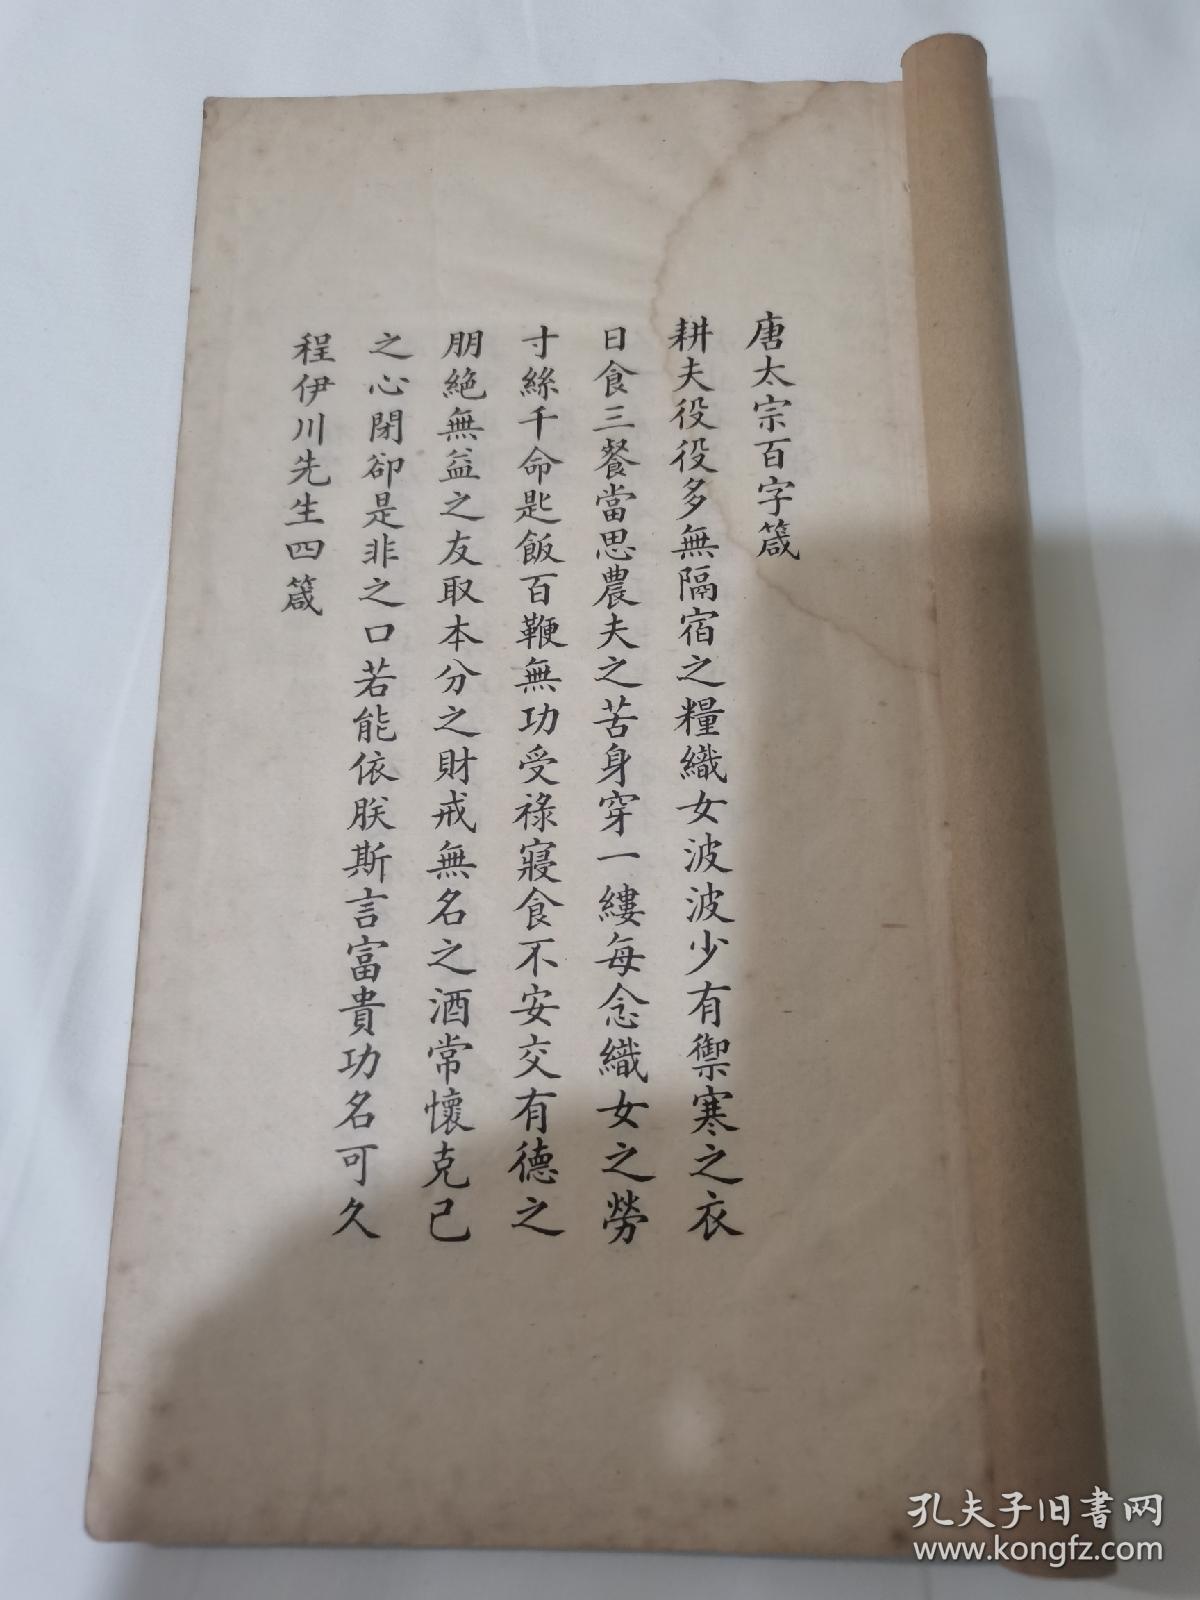 唐太宗百字箴
耕夫役役多無隔宿之糧織女波波少有禦寒之衣
日食三餐當思農夫之苦身穿一縷每念織女之勞
寸絲千命匙飯百鞭無功受祿寢食不安交有德之
朋絕無益之友取本分之財戒無名之酒常懷克己
之心閉卻是非之口若能依朕斯言富貴功名可久
程伊川先生四箴
孔夫子旧書网
www.kongfz.com